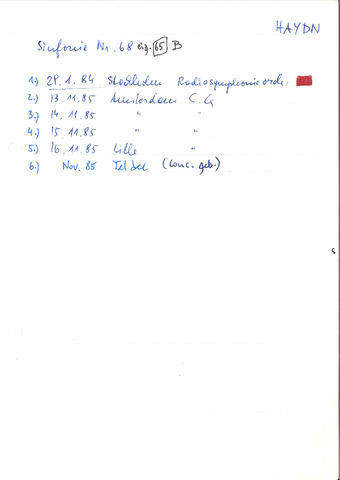 HAYDN
Sinfonie Nr. 68 eig. 65 B
1.) 28.1.84 Stockholm Radiosymphonieorch.
2.) 13.11.85 Amsterdam C.G
3.) 14.11.85 " "
4.) 15.11.85 " "
5.) 16.11.85 Lille "
6.) Nov. 85 Teldec (Conc. geb.)